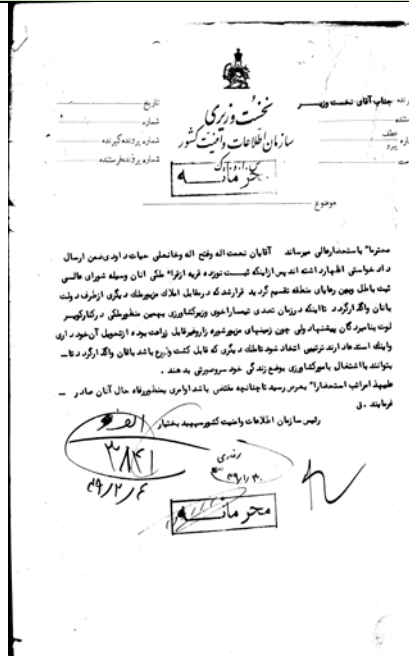 نخست وزیری
سازمان اطلاعات و امنیت کشور
س.ا.و.ا.ک
محرمانه
جناب آقای نخست وزیر
تاریخ
شماره
شماره پرونده گیرنده
شماره پرونده فرستنده
عطف
پیرو
موضوع
محترما" باستحضارعالی میرساند آقایان نعمت اله وفتح اله وخانعلی حیات داودی ضمن ارسال
داد خواستی اظهارد اشته اند پس ازاینکه ثبت نوزده قریه ازقراء ملکی آنان وسیله شورای عالی
ثبت باطل وبین رعایای منطقه تقسیم گرد ید قرارشد که درمقابل املاک مزبورملک دیگری ازطرف دولت
بانان واگذارگردد تااینکه درزمان تصدی تیمساراخوی وزیرکشاورزی بهمین منظورملکی درکنارکویر
لوت بنامبردگان پیشنهاد ولی چون زمینهای مزبورشوره زاروغیرقابل زراعت بوده ازتحویل آن خود داری
واینک استدعاد ارند ترتیبی اتخاذ شود تاملک دیگری که قابل کشت وزرع باشد بآنان واگذارگردد تا
بتوانند بااشتغال بامورکشاورزی بوضع زندگی خود سروصورتی بدهند .
علیهذ امراتب استحضارا" بعرض رسید تاچنانچه مقتضی باشد اوامری بمنظوررفاه حال آنان صادر
فرمایند . ق
رئیس سازمان اطلاعات وامنیت کشورسپهبد بختیار
۳۸۴۱
۳۹/۲/۴
۳۹/۱/۳۰
محرمانه